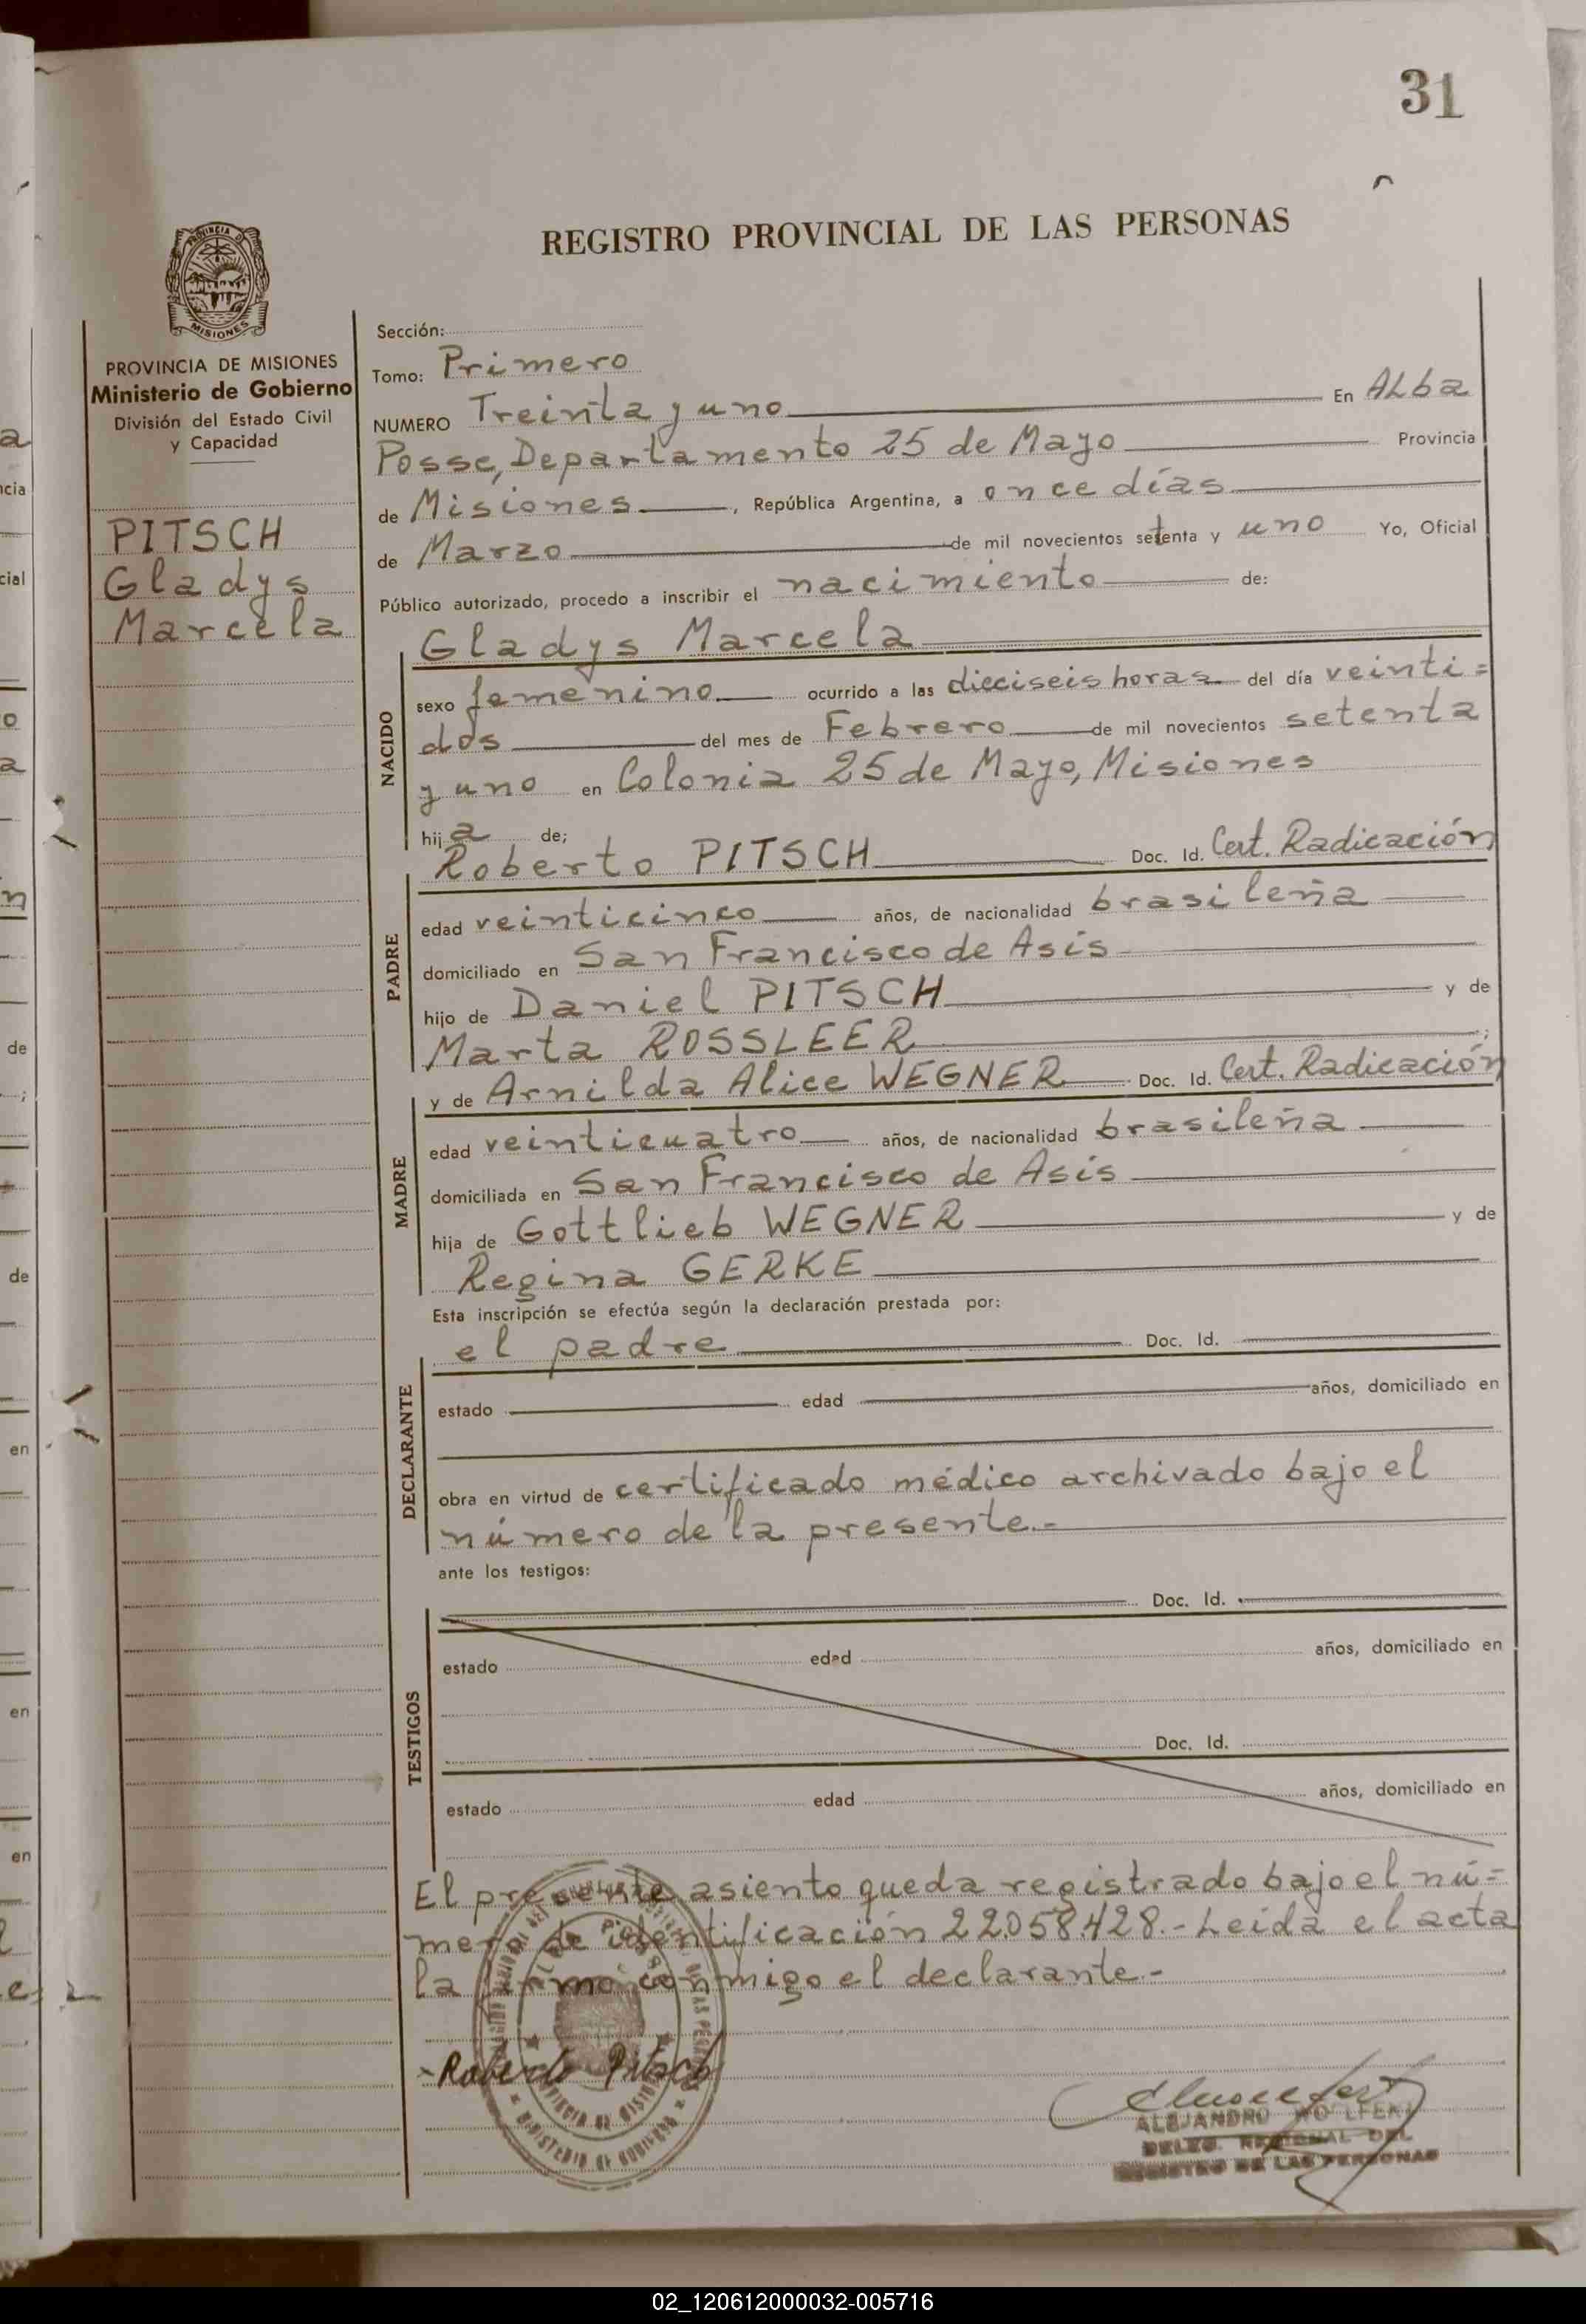 31
REGISTRO PROVINCIAL DE LAS PERSONAS
PROVINCIA DE MISIONES
Ministerio de Gobierno
División del Estado Civil
y Capacidad
PITSCH
Gladys
Marcela
Sección:
Tomo: Primero
NUMERO Treinta y uno En ALba
Posse, Departamento 25 de Mayo Provincia
de Misiones, República Argentina, a once días
de Marzo de mil novecientos setenta y uno Yo, Oficial
Público autorizado, procedo a inscribir el nacimiento de:
NACIDO
Gladys Marcela
sexo femenino ocurrido a las dieciseis horas del día veinti=
dos del mes de Febrero de mil novecientos setenta
y uno en Colonia 25 de Mayo, Misiones
hija de;
PADRE
Roberto PITSCH Doc. Id. Cert. Radicación
edad veinticinco años, de nacionalidad brasileña
domiciliado en San Francisco de Asis
hijo de Daniel PITSCH y de
Marta ROSSLEER ;
MADRE
y de Arnilda Alice WEGNER Doc. Id. Cert. Radicación
edad veinticuatro años, de nacionalidad brasileña
domiciliada en San Francisco de Asis
hija de Gottlieb WEGNER y de
Regina GERKE
Esta inscripción se efectúa según la declaración prestada por:
DECLARANTE
el padre Doc. Id.
estado edad años, domiciliado en
obra en virtud de certificado médico archivado bajo el
número de la presente.-
ante los testigos:
TESTIGOS
Doc. Id.
estado edad años, domiciliado en
Doc. Id.
estado edad años, domiciliado en
El presente asiento queda registrado bajo el nú=
mero de identificación 22.058.428.- Leida el acta
la firma conmigo el declarante.-
Roberto Pitsch
ALEJANDRO
DELEG. REGIONAL DEL
REGISTRO DE LAS PERSONAS
02_120612000032-005716